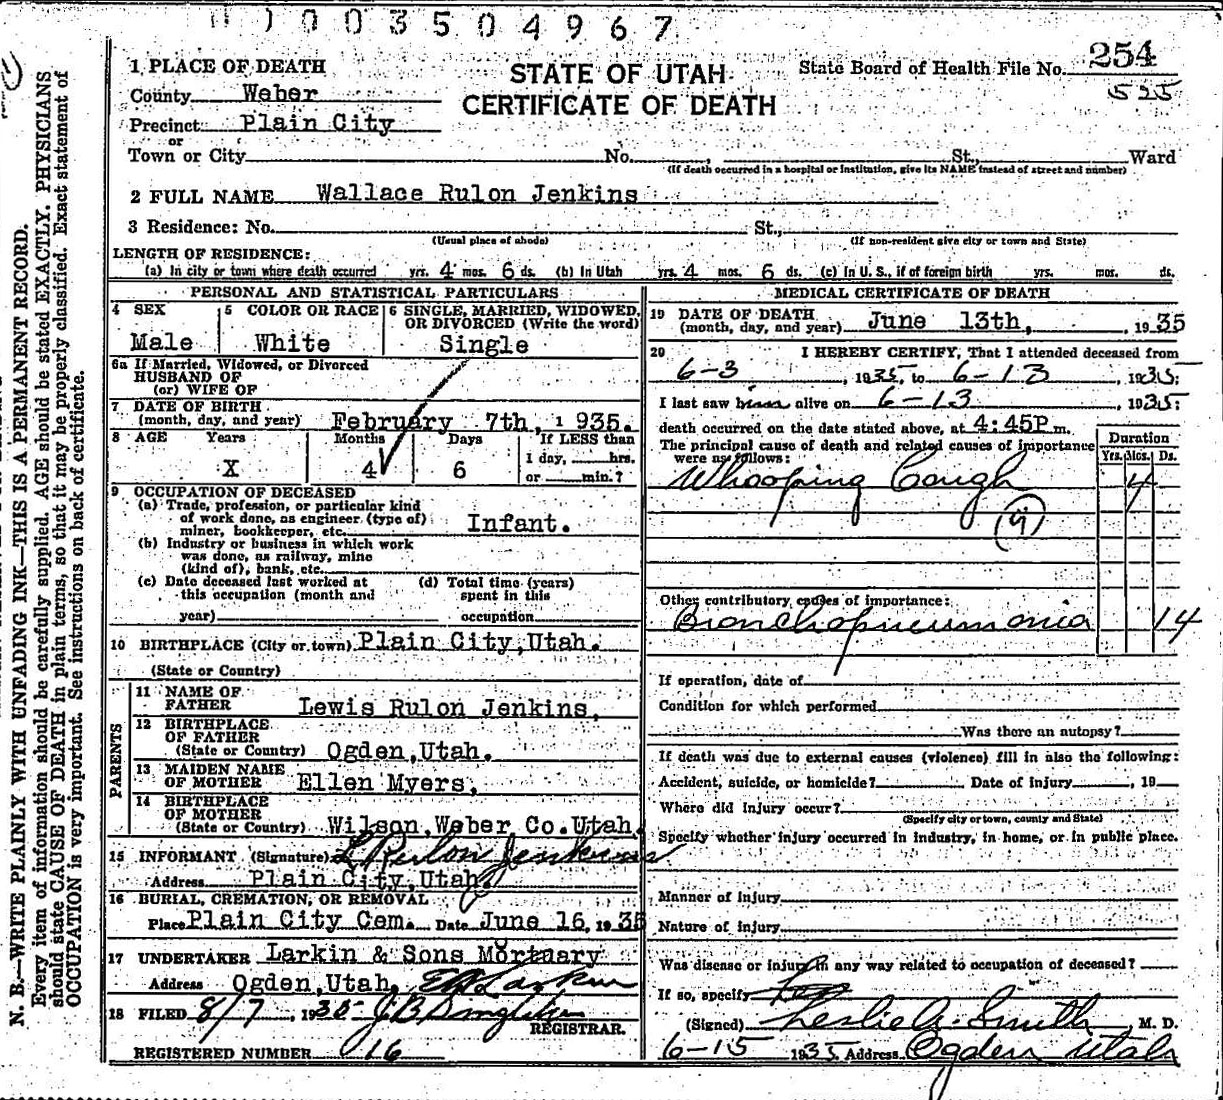 0 0 3 5 0 4 9 6 7
1 PLACE OF DEATH
County Weber
Precinct Plain City
or
Town or City No. St., Ward
(If death occurred in a hospital or institution, give its NAME instead of street and number)
STATE OF UTAH
CERTIFICATE OF DEATH
State Board of Health File No. 254
525
2 FULL NAME Wallace Rulon Jenkins
3 Residence: No. St.,
(Usual place of abode) (If non-resident give city or town and State)
LENGTH OF RESIDENCE:
(a) In city or town where death occurred yrs. 4 mos. 6 ds. (b) In Utah yrs. 4 mos. 6 ds. (c) In U. S., if of foreign birth yrs. mos. ds.
PERSONAL AND STATISTICAL PARTICULARS
4 SEX
Male
5 COLOR OR RACE
White
6 SINGLE, MARRIED, WIDOWED,
OR DIVORCED (Write the word)
Single
6a If Married, Widowed, or Divorced
HUSBAND OF
(or) WIFE OF
7 DATE OF BIRTH
(month, day, and year) February 7th, 1935.
8 AGE Years Months Days If LESS than
1 day, hrs.
X 4 6 or min.?
9 OCCUPATION OF DECEASED
(a) Trade, profession, or particular kind
of work done, as engineer (type of)
miner, bookkeeper, etc. Infant.
(b) Industry or business in which work
was done, as railway, mine
(kind of), bank, etc.
(c) Date deceased last worked at
this occupation (month and
year)
(d) Total time (years)
spent in this
occupation
10 BIRTHPLACE (City or town) Plain City,Utah.
(State or Country)
PARENTS
11 NAME OF
FATHER Lewis Rulon Jenkins,
12 BIRTHPLACE
OF FATHER
(State or Country) Ogden,Utah.
13 MAIDEN NAME
OF MOTHER Ellen Myers,
14 BIRTHPLACE
OF MOTHER
(State or Country) Wilson,Weber Co.Utah.
15 INFORMANT (Signature) L Rulon Jenkins
Address Plain City,Utah.
16 BURIAL, CREMATION, OR REMOVAL
Place Plain City Cem. Date June 16, 1935
17 UNDERTAKER Larkin & Sons Mortuary
Address Ogden,Utah, Larkin
18 FILED 8/7, 1935
REGISTRAR.
REGISTERED NUMBER 16
MEDICAL CERTIFICATE OF DEATH
19 DATE OF DEATH
(month, day, and year) June 13th, 1935
20 I HEREBY CERTIFY, That I attended deceased from
6-3, 1935, to 6-13, 1935:
I last saw him alive on 6-13, 1935:
death occurred on the date stated above, at 4:45P.m.
The principal cause of death and related causes of importance
were as follows:
Duration
Yrs. Mos. Ds.
Whooping Cough 4
(9)
Other contributory causes of importance:
Bronchopneumonia 14
If operation, date of
Condition for which performed
Was there an autopsy?
If death was due to external causes (violence) fill in also the following:
Accident, suicide, or homicide? Date of injury, 19
Where did injury occur?
(Specify city or town, county and State)
Specify whether injury occurred in industry, in home, or in public place.
Manner of injury
Nature of injury
Was disease or injury in any way related to occupation of deceased?
If so, specify
(Signed) Leslie A. Smith M. D.
6-15 1935 Address Ogden Utah
N. B.—WRITE PLAINLY WITH UNFADING INK—THIS IS A PERMANENT RECORD.
Every item of information should be carefully supplied. AGE should be stated EXACTLY. PHYSICIANS
should state CAUSE OF DEATH in plain terms, so that it may be properly classified. Exact statement of
OCCUPATION is very important. See instructions on back of certificate.